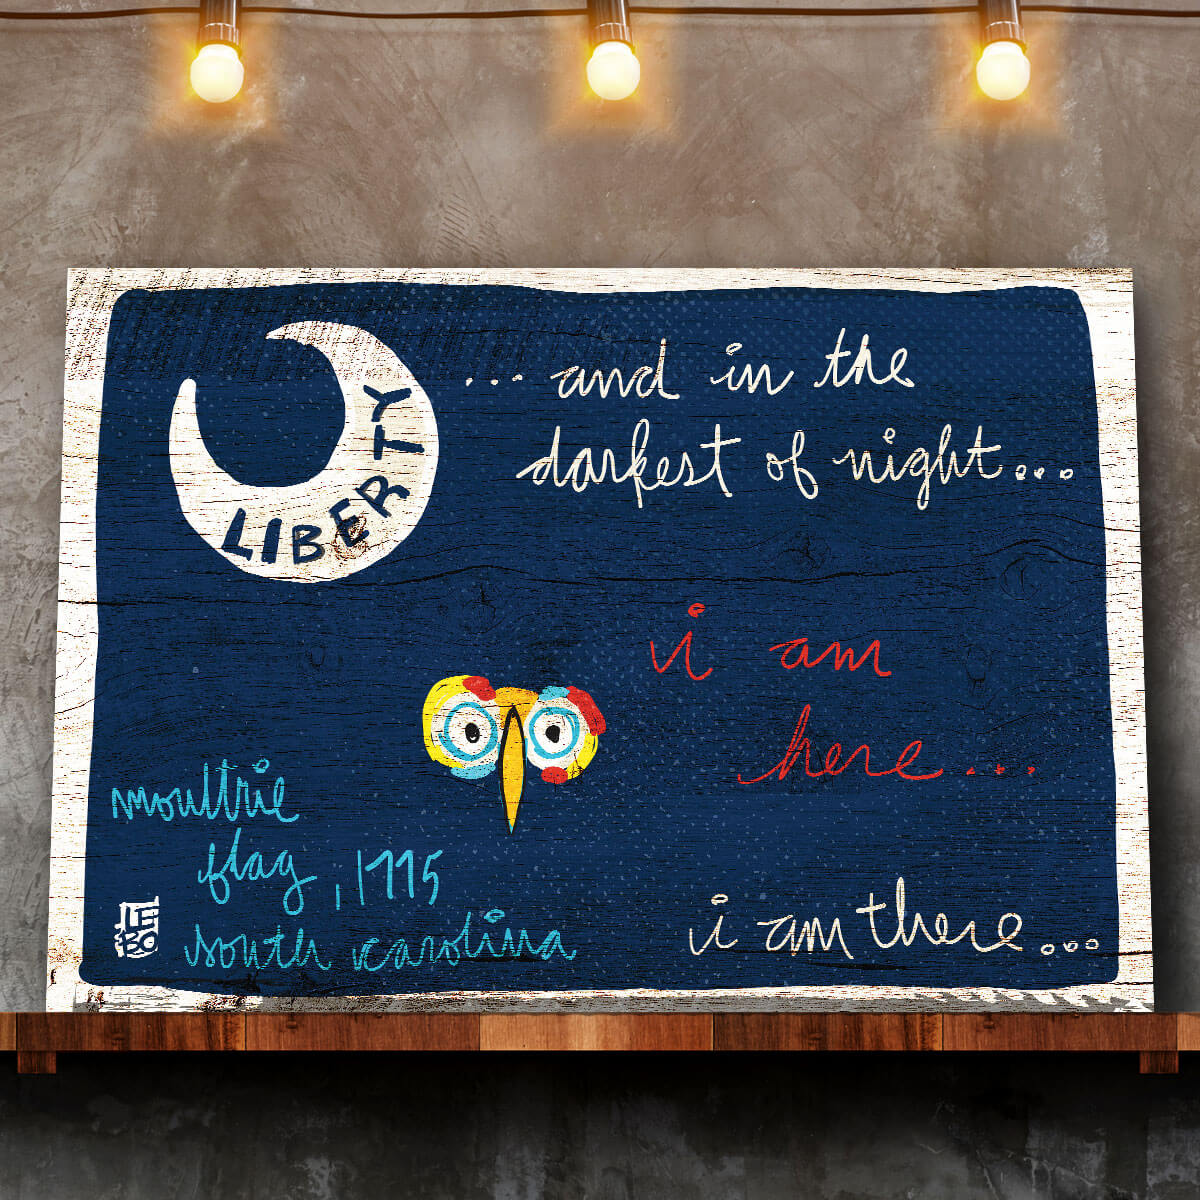 LIBERTY
... and in the
darkest of night...
i am
here...
moultrie
flag, 1775
south carolina
i am there...
LE
BO